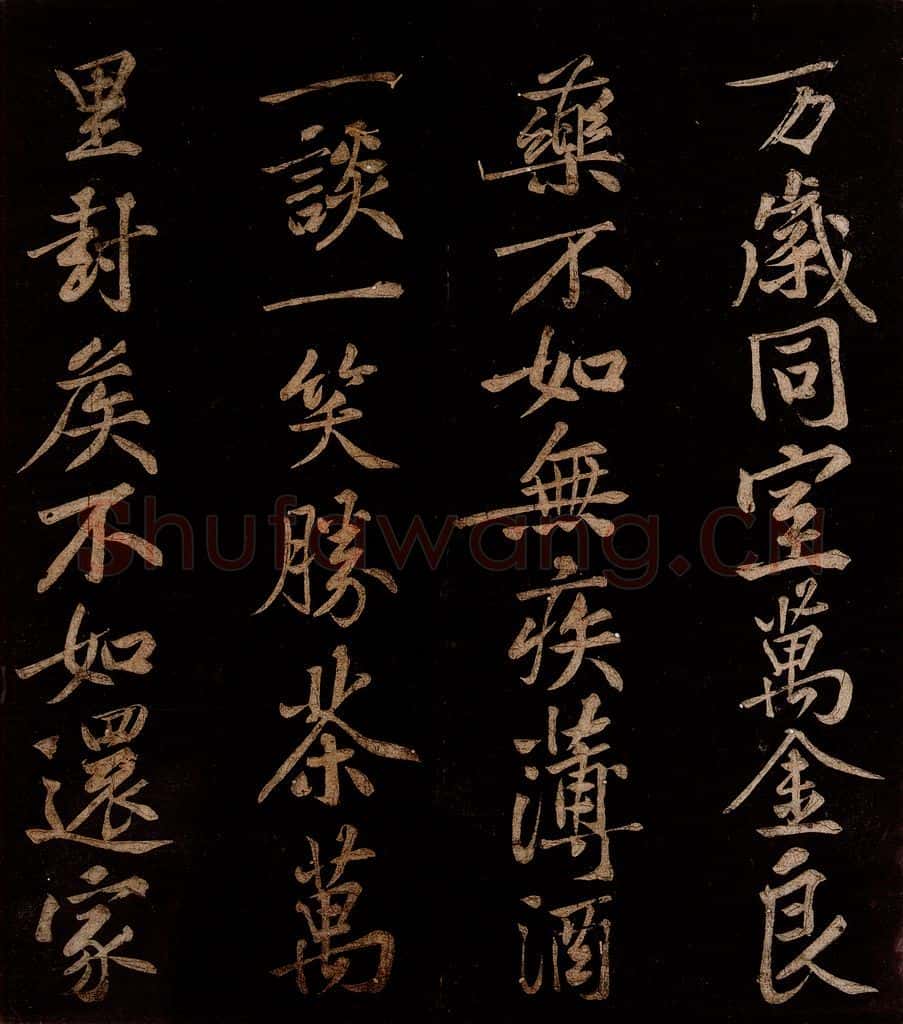 万歲同室萬金良
藥不如無疾薄酒
一談一笑勝茶萬
里封矦不如還家
Shufawang.CN